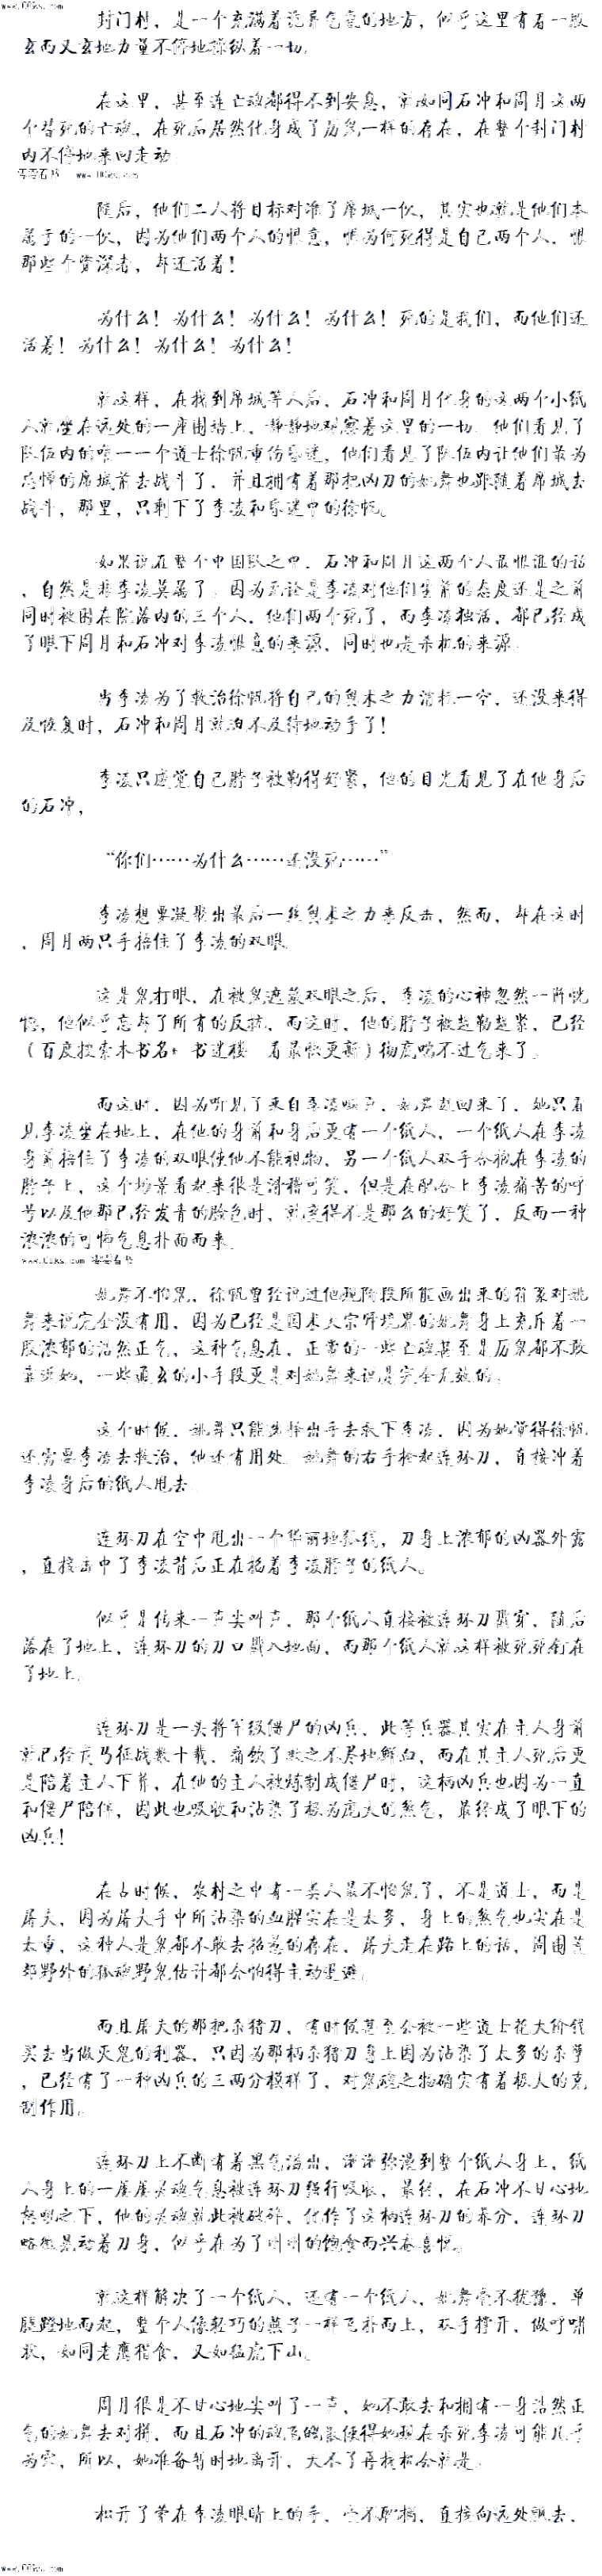 www.00ks.com
封门村，是一个充满着诡异气息的地方，似乎这里有着一股
玄而又玄地力量不停地操纵着一切。
在这里，甚至连亡魂都得不到安息，就如同石冲和周月这两
个替死的亡魂，在死后居然化身成了历鬼一样的存在，在整个封门村
内不停地来回走动。
零零看书 www.00ks.com
随后，他们二人将目标对准了席城一伙，其实也就是他们本
属于的一伙，因为他们两个人的恨意，恨为何死得是自己两个人，恨
那些个资深者，却还活着！
为什么！为什么！为什么！为什么！死的是我们，而他们还
活着！为什么！为什么！为什么！
就这样，在找到席城等人后，石冲和周月化身的这两个小纸
人就坐在远处的一座围墙上，静静地观察着这里的一切，他们看见了
队伍内的唯一一个道士徐帆重伤昏迷，他们看见了队伍内让他们最为
忌惮的席城前去战斗了，并且拥有着那把凶刀的姚舞也跟随着席城去
战斗，那里，只剩下了李凌和昏迷中的徐帆。
如果说在整个中国队之中，石冲和周月这两个人最恨谁的话
，自然是非李凌莫属了，因为无论是李凌对他们生前的态度还是之前
同时被困在院落内的三个人，他们两个死了，而李凌独活，都已经成
了眼下周月和石冲对李凌恨意的来源，同时也是杀机的来源。
当李凌为了救治徐帆将自己的异术之力消耗一空，还没来得
及恢复时，石冲和周月就迫不及待地动手了！
李凌只感觉自己脖子被勒得好紧，他的目光看见了在他身后
的石冲，
“你们……为什么……还没死……”
李凌想要凝聚出最后一丝异术之力来反击，然而，却在这时
，周月两只手捂住了李凌的双眼。
这是鬼打眼，在被鬼遮蔽双眼之后，李凌的心神忽然一阵恍
惚，他似乎忘却了所有的反抗，而这时，他的脖子被越勒越紧，已经
（百度搜索本书名+ 书迷楼 看最快更新）彻底喘不过气来了。
而这时，因为听见了来自李凌喊声，姚舞赶回来了，她只看
见李凌坐在地上，在他的身前和身后更有一个纸人，一个纸人在李凌
身前捂住了李凌的双眼使他不能视物，另一个纸人双手合抱在李凌的
脖子上，这个场景看起来很是滑稽可笑，但是在配合上李凌痛苦的呼
号以及他那已经发青的脸色时，就变得不是那么的好笑了，反而一种
浓浓的可怖气息扑面而来。
www.00ks.com 零零看书
姚舞不怕鬼，徐帆曾经说过他现阶段所能画出来的符篆对姚
舞来说完全没有用，因为已经是国术大宗师境界的姚舞身上充斥着一
股浓郁的浩然正气，这种气息在，正常的一些亡魂甚至是历鬼都不敢
靠近她，一些通玄的小手段更是对姚舞来说是完全无效的。
这个时候，姚舞只能选择出手去救下李凌，因为她觉得徐帆
还需要李凌去救治，他还有用处。姚舞的右手抡起连环刀，直接冲着
李凌身后的纸人甩去。
连环刀在空中甩出一个华丽地弧线，刀身上浓郁的凶器外露
，直接击中了李凌背后正在掐着李凌脖子的纸人。
似乎是传来一声尖叫声，那个纸人直接被连环刀戳穿，随后
落在了地上，连环刀的刀口戳入地面，而那个纸人就这样被死死钉在
了地上。
连环刀是一头将军级僵尸的凶兵，此等兵器其实在主人身前
就已经戎马征战数十载，痛饮了数之不尽地鲜血，而在其主人死后更
是陪着主人下葬，在他的主人被炼制成僵尸时，这柄凶兵也因为一直
和僵尸陪伴，因此也吸收和沾染了极为庞大的煞气，最终成了眼下的
凶兵！
在古时候，农村之中有一类人最不怕鬼了，不是道士，而是
屠夫，因为屠夫手中所沾染的血腥实在是太多，身上的煞气也实在是
太重，这种人是鬼都不敢去招惹的存在，屠夫走在路上的话，周围荒
郊野外的孤魂野鬼估计都会怕得主动退避。
而且屠夫的那把杀猪刀，有时候甚至会被一些道士花大价钱
买去当做灭鬼的利器，只因为那柄杀猪刀身上因为沾染了太多的杀孽
，已经有了一种凶兵的三两分模样了，对鬼魂之物确实有着极大的克
制作用。
连环刀上不断有着黑气溢出，渐渐弥漫到整个纸人身上，纸
人身上的一层层灵魂气息被连环刀强行吸收，最终，在石冲不甘心地
怒吼之下，他的灵魂就此被破碎，化作了这柄连环刀的养分，连环刀
略微晃动着刀身，似乎在为了刚刚的饱食而兴奋喜悦。
就这样解决了一个纸人，还有一个纸人，姚舞毫不犹豫，单
腿蹬地而起，整个人像轻巧的燕子一样飞扑而上，双手撑开，做呼啸
状，如同老鹰猎食，又如猛虎下山。
周月很是不甘心地尖叫了一声，她不敢去和拥有一身浩然正
气的姚舞去对拼，而且石冲的魂飞魄散使得她现在杀死李凌可能几乎
为零，所以，她准备暂时地离开，大不了再找机会就是。
松开了蒙在李凌眼睛上的手，毫不耽搁，直接向远处飘去，
www.00ks.com